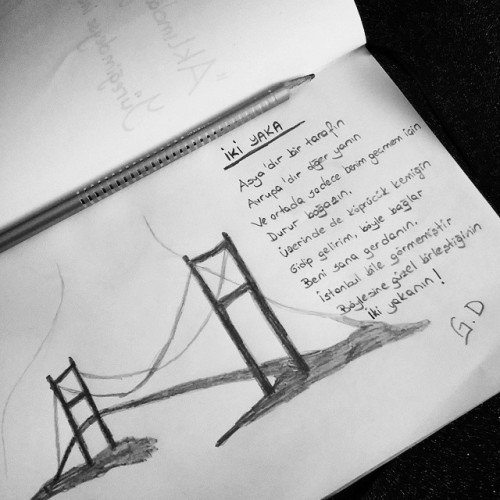 İKİ YAKA
Asya'dır bir tarafın
Avrupa'dır diğer yanın
Ve ortada sadece benim geçmem için
Durur boğazın,
Üzerinde de köprücük kemiğin
Gidip gelirim, böyle bağlar
Beni sana gerdanın.
İstanbul bile görmemiştir
Böylesine güzel birleştiğinin
İki yakanın!
G.D
"Aklımda
Yüreğim